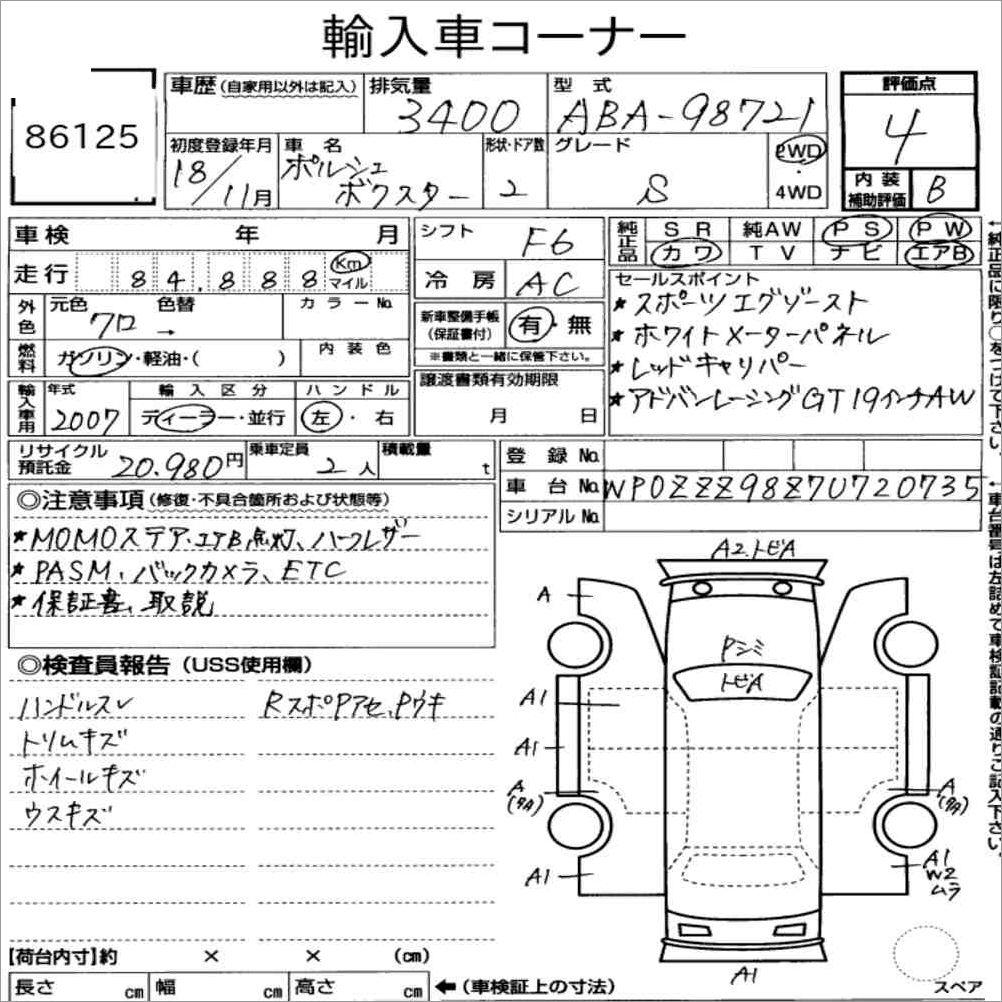 輸入車コーナー
86125
車歴(自家用以外は記入) 排気量 3400 型式 ABA-98721
評価点 4
初度登録年月 18/11月 車名 ポルシェ ボクスター 形状・ドア数 2 グレード S 2WD・4WD
内装補助評価 B
車検 年 月
シフト F6
純正品 SR 純AW PS PW
カワ TV ナビ エアB
走行 84,888 Km マイル
冷房 AC
セールスポイント
★スポーツエグゾースト
★ホワイトメーターパネル
★レッドキャリパー
★アドバンレーシングGT19インチAW
外色 元色 クロ → 色替 カラーNo.
新車整備手帳(保証書付) 有・無
※書類と一緒に保管下さい。
燃料 ガソリン・軽油・( ) 内装色
譲渡書類有効期限
月 日
輸入車用 年式 2007 輸入区分 ディーラー・並行 ハンドル 左・右
リサイクル預託金 20,980円 乗車定員 2人 積載量 t
登録No.
車台No. WP0ZZZ98Z7U720735
シリアルNo.
◎注意事項(修復・不具合箇所および状態等)
★MOMOステア・エアB点灯、ハーフレザー
★PASM、バックカメラ、ETC
★保証書、取説
◎検査員報告(USS使用欄)
ハンドルスレ
トリムキズ
ホイールキズ
ウスキズ
RスポPアセ、Pウキ
A2.トビA
A
Pシミ
トビA
A1
A1
A
(タA)
A
(タA)
A1
A1
W2
ムラ
A1
スペア
【荷台内寸】約 × × (cm)
長さ cm 幅 cm 高さ cm ←(車検証上の寸法)
←純正品に限り○をつけて下さい。
←車台番号は左詰めで車検証記載の通りご記入下さい。